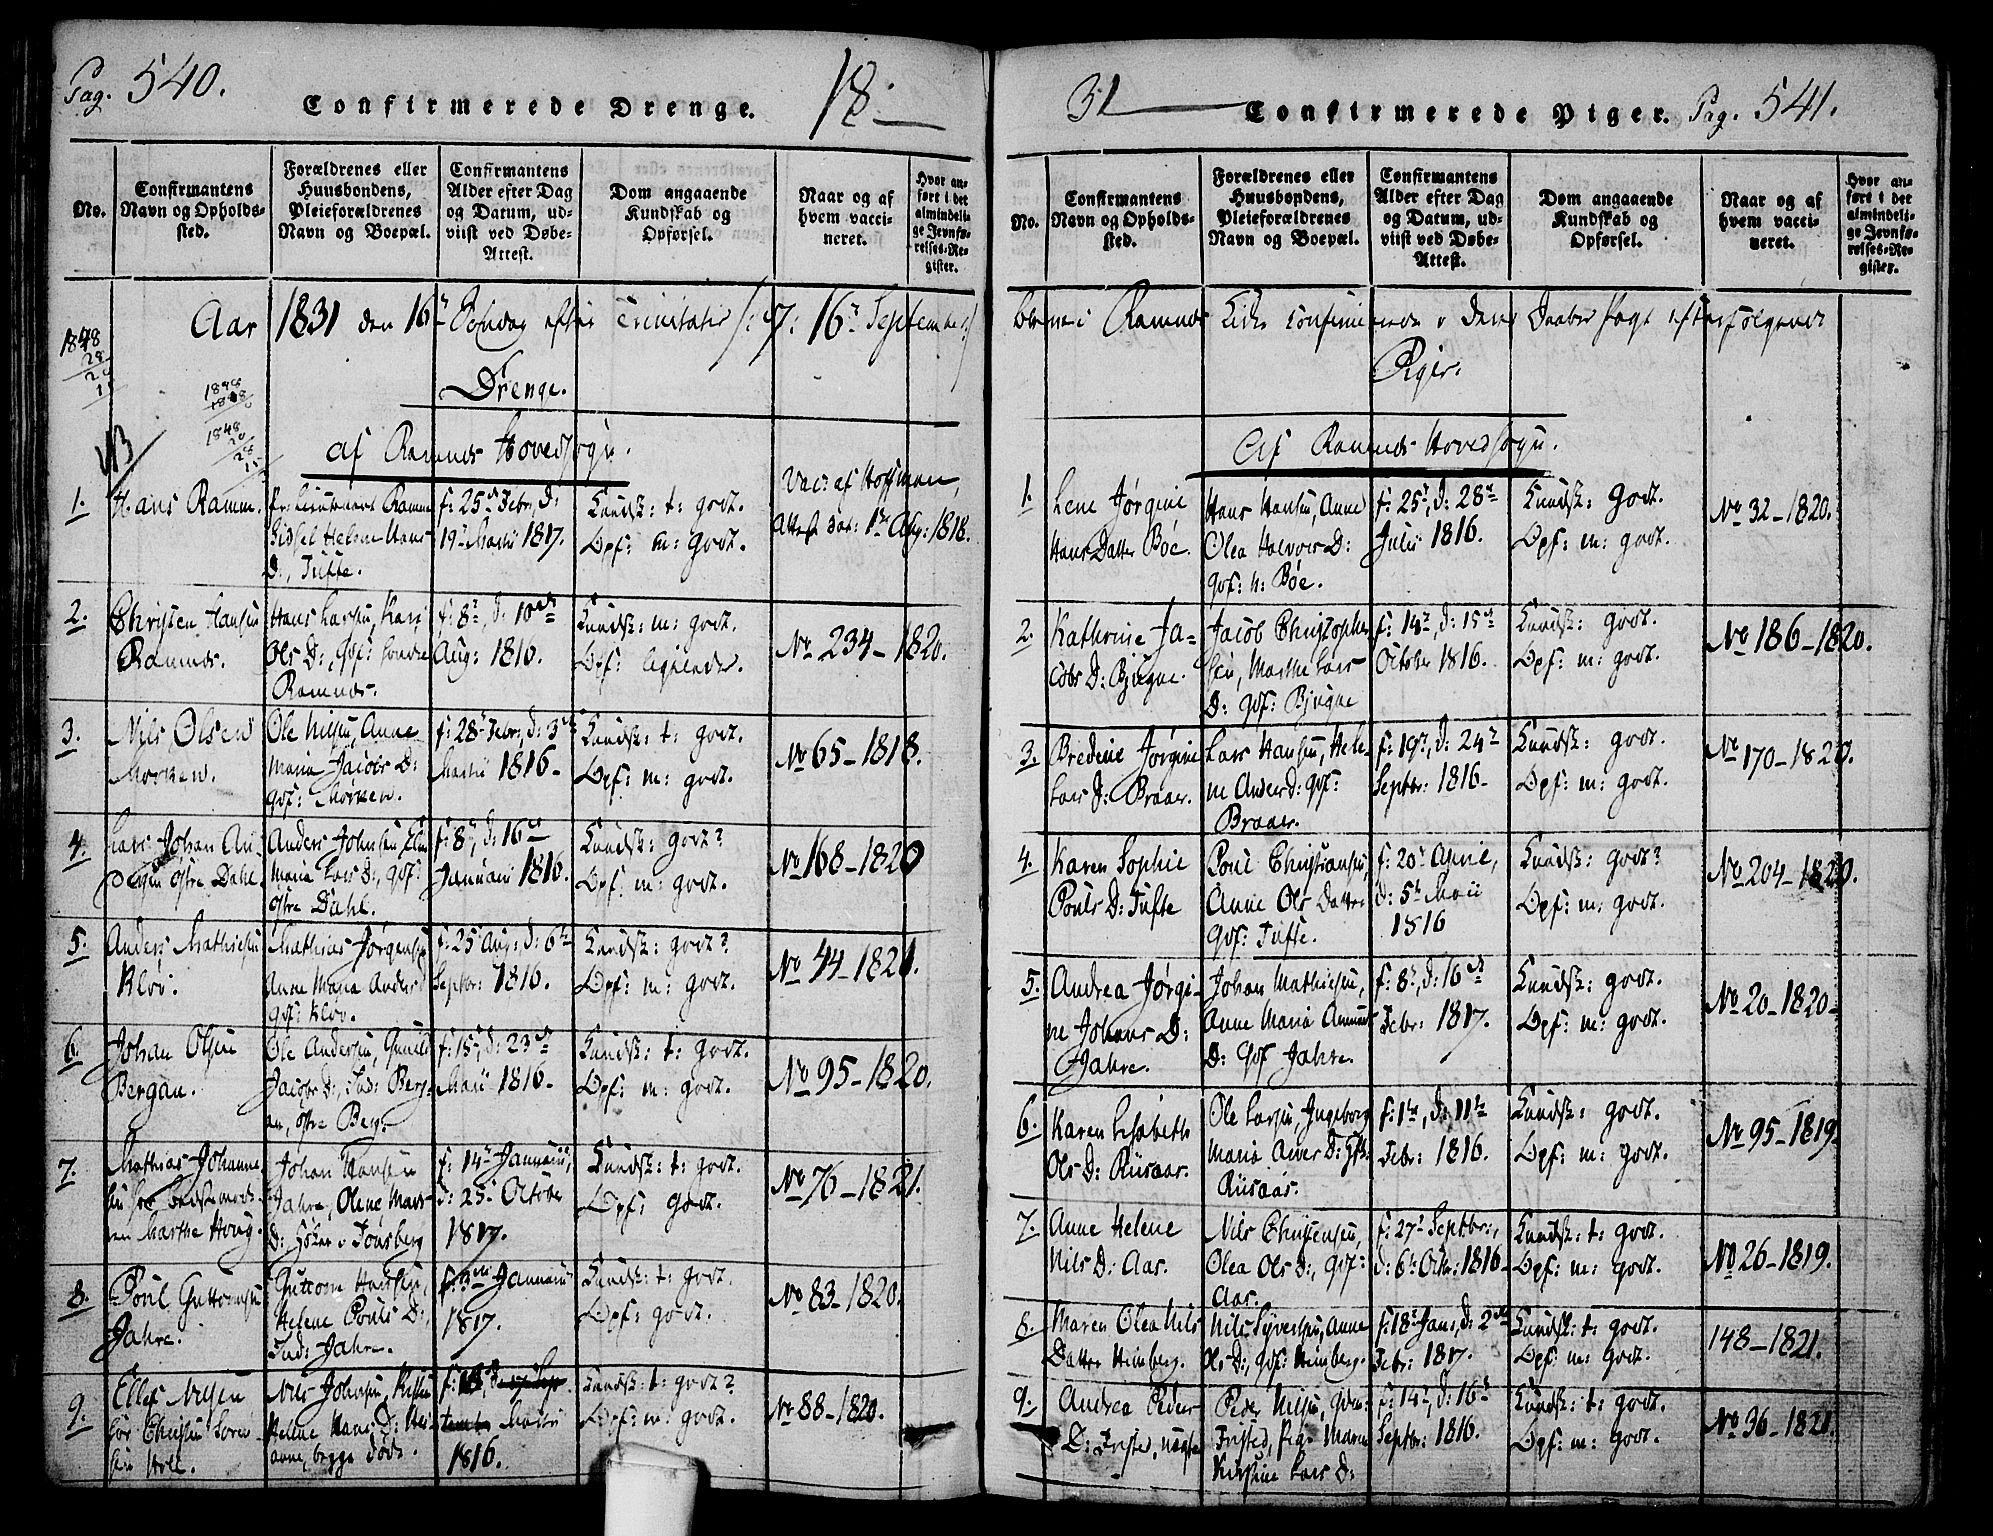 Pag. 540.
Confirmerede Drenge.
18
No.
Confirmantens
Navn og Opholds-
sted.
Forældrenes eller
Huusbondens,
Pleieforældrenes
Navn og Boepæl.
Confirmantens
Alder efter Dag
og Datum, ud-
viist ved Døbe-
Attest.
Dom angaaende
Kundskab og
Opførsel.
Naar og af
hvem vacci-
neret.
Hvor an-
ført i det
almindeli-
ge Jevnfø-
relses-Re-
gister.
Aar 1831 den 16 Søndag efter Trinitatis 16 September
1848
28
1848
Drenge.
af Ramnes Hovedsogn.
1.
Hans Ramm.
Pr: Lieutenant Ramm
Sidsel Helene Hans
D:, Tufte.
f: 25 Febr, d:
19 Martii 1817.
Kundsk: t: godt.
Opf: m: godt.
Vacc: af Hoffman,
Attest dat: 1 Aug: 1818.
2.
Christen Hansen
Ramnes.
Hans Larsen, Kari
Ols D:, Gof: Søndre
Ramnes.
f: 8, d: 10
Aug: 1816.
Kundsk: m: godt.
Opf: ligeledes.
No 234-1820.
3.
Nils Olsen
Morken.
Ole Nilsen, Anne
Maria Jacobs D:
gof: Morken.
f: 28 Febr, d: 3
Martii 1816-
Kundsk: t: godt.
Opf: m: godt.
No 65-1818.
4.
Lars Johan An-
dersen østre Dahl.
Anders Johnsen,
Maria Lars D:, gof:
østre Dahl.
f: 8, d: 16
Januarii 1816.
Kundsk: godt?
Opf: m: godt.
No 168-1820
5.
Anders Mathiesen
Kløv.
Mathias Jørgensen
Anne Maria Anders
gof: Kløv.
f: 25 Aug:, d: 6
Septbr: 1816.
Kundsk: godt?
Opf: m: godt.
No 44-1821.
6.
Johan Olsen
Bergan.
Ole Andersen,
Jacobs D:, Ind: Berg-
an, østre Berg.
f: 15, d: 23
Maii 1816-
Kundsk: t: godt.
Opf: m: godt.
No 95-1820.
7.
Mathias Johanne-
sen hos
Marthe Houg.
Johan Hansen
Jahre, Olene Mars
D: i Tønsberg
f: 14 Januarii,
d: 25 October
1817.
Kundsk: t: godt.
Opf: godt.
No 76-1821.
8.
Poul Guttormsen
Jahre.
Guttorm Hansen,
Helene Pouls D:,
Ind: Jahre.
f: 3 Januarii
1817.
Kundsk: t: godt.
Opf: godt.
No 83-1820.
9.
Ellef Nilsen
hos Christen Soren-
sen Holt.
Nils Johnsen,
Helene Hans D:
begge døde.
f: 18
Martii
1816.
Kundsk: t: godt?
Opf: m: godt.
No 88-1820.
31
Confirmerede Piger.
Pag. 541.
No.
Confirmantens
Navn og Opholds-
sted.
Forældrenes eller
Huusbondens,
Pleieforældrenes
Navn og Boepæl.
Confirmantens
Alder efter Dag
og Datum, ud-
viist ved Døbe-
Attest.
Dom angaaende
Kundskab og
Opførsel.
Naar og af
hvem vacci-
neret.
Hvor an-
ført i det
almindeli-
ge Jevnfø-
relses-Re-
gister.
bleve i Ramnes Kirke confirmerede i deres Daabes Pagt efterfølgende
Piger.
Af Ramnes Hovedsogn.
1.
Lene Jørgine
Hans Datter Bøe.
Hans Hansen, Anne
Olea Halvors D:
gof: n: Bøe.
f: 25, d: 28
Julii 1816.
Kundsk: godt.
Opf: m: godt.
No 32-1820.
2.
Kathrine Ja-
cobs D: Bjugne.
Jacob Christopher-
sen, Marthe Lars
D: gof: Bjugne
f: 14, d: 15
October 1816.
Kundsk: godt.
Opf: m: godt.
No 186-1820.
3.
Bredine Jørgine
Lars D: Braar.
Lars Hansen, Hele-
ne Anders D: gof:
Braar.
f: 19, d: 24
Septbr: 1816-
Kundsk: godt.
Opf: m: godt.
No 170-1820.
4.
Karen Sophie
Pouls D: Tufte
Poul Christiansen,
Anne Ols Datter
gof: Tufte.
f: 20 April,
d: 5 Maii
1816
Kundsk: godt?
Opf: m: godt.
No 204-1820.
5.
Andrea Jørgi-
ne Johans D:
Jahre.
Johan Mathiesen,
Anne Maria
D: gof Jahre.
f: 8, d: 16
Febr: 1817.
Kundsk: godt.
Opf: m: godt.
No 20-1820-
6.
Karen Lisabeth
Ols D: Riisaas.
Ole Larsen, Ingeborg
Maria D:
Riisaas.
f: 1, d: 11
Febr: 1816.
Kundsk: godt.
Opf: m: godt.
No 95-1819-
7.
Anne Helene
Nils D: Aas.
Nils Christensen,
Olea Ols D:, gof:
Aas.
f: 27 Septbr:,
d: 6 Octbr: 1816-
Kundsk: t: godt.
Opf: m: godt.
No 26-1819.
8.
Maren Olea Nils
Datter Heimberg.
Nils Syversen, Anne
Ols D:, gof: Heimberg.
f: 18 Jan:, d: 2
Febr: 1817.
Kundsk: t: godt.
Opf: m: godt.
148-1821.
9.
Andrea Peders
D:
Peder Nilsen,
Maren
Kirstine Lars D:
f: 14, d: 16
Septbr: 1816.
Kundsk: t: godt.
Opf: m: godt.
No 36-1821.